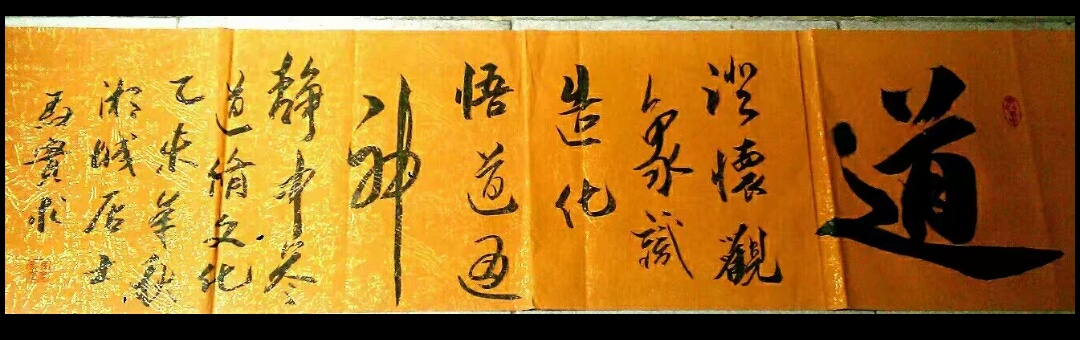 道
澄懷觀
象識
造化
悟道通
神
靜中参
道脩文化
乙未年秋
湘城居士